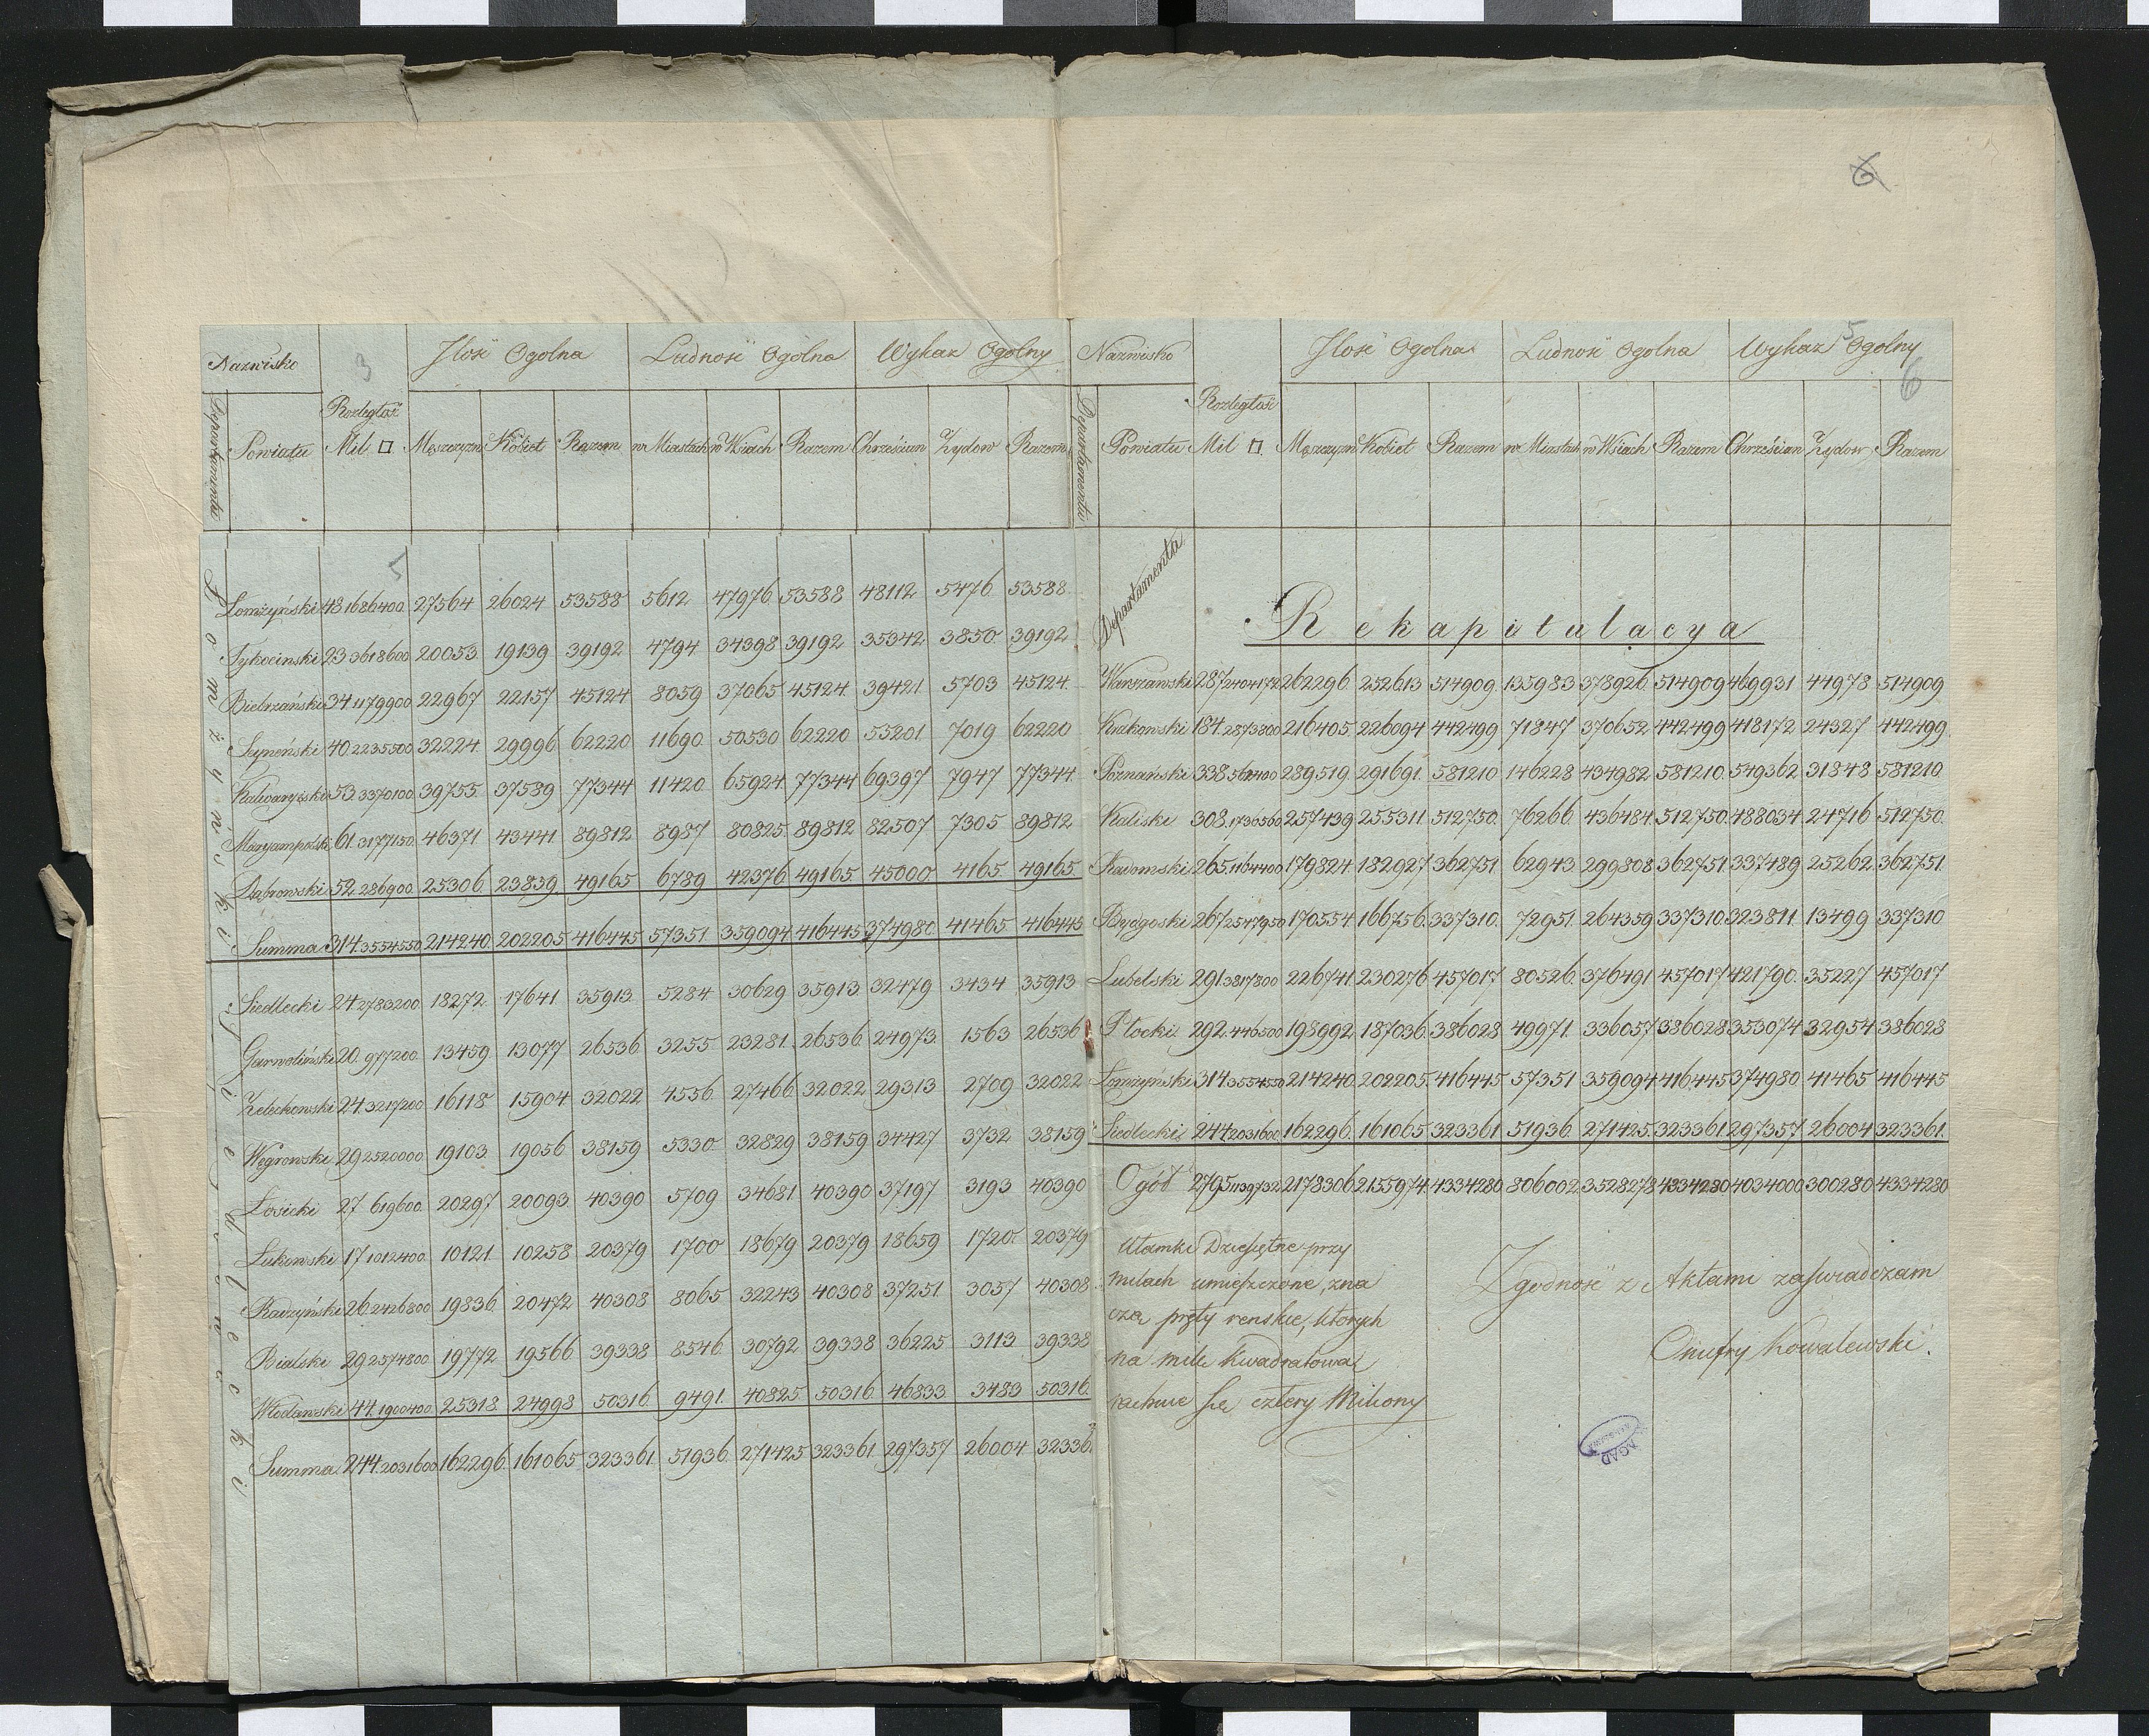 6
Nazwisko
3
Jlość Ogolna
Ludność Ogolna
Wykaz Ogolny
Departamentu
Powiatu
Rozległość Mil □
Męszczyzn
Kobiet
Razem
w Miastach
w Wsiach
Razem
Chrześcian
Zydow
Razem
5
Łomżyński
Łomżyński 48 1686400 27564 26024 53588 5612 47976 53588 48112 5476 53588
Tykocinski 23 3618600 20053 19139 39192 4794 34398 39192 35342 3850 39192
Biebrzański 34 1179900 22967 22157 45124 8059 37065 45124 39421 5703 45124
Seyneński 40 2235500 32224 29996 62220 11690 50530 62220 55201 7019 62220
Kalwaryiski 53 3370100 39755 37589 77344 11420 65924 77344 69397 7947 77344
Maryampolski 61 3177150 46371 43441 89812 8987 80825 89812 82507 7305 89812
Dąbrowski 52 286900 25306 23859 49165 6789 42376 49165 45000 4165 49165
Summa 314 3554550 214240 202205 416445 57351 359094 416445 374980 41465 416445
Siedlecki
Siedlecki 24 2783200 18272 17641 35913 5284 30629 35913 32479 3434 35913
Garwoliński 20 977200 13459 13077 26536 3255 23281 26536 24973 1563 26536
Zelechowski 24 3217200 16118 15904 32022 4556 27466 32022 29313 2709 32022
Węgrowski 29 2520000 19103 19056 38159 5330 32829 38159 34427 3732 38159
Łosicki 27 619600 20297 20093 40390 5709 34681 40390 37197 3193 40390
Łukowski 17 1012400 10121 10258 20379 1700 18679 20379 18659 1720 20379
Radzyński 26 2426800 19836 20472 40308 8065 32243 40308 37251 3057 40308
Bialski 29 2574800 19772 19566 39338 8546 30792 39338 36225 3113 39338
Włodawski 44 1900400 25318 24998 50316 9491 40825 50316 46833 3483 50316
Summa 244 2031600 162296 161065 323361 51936 271425 323361 297357 26004 323361
Nazwisko
Jlość Ogolna
Ludność Ogolna
Wykaz Ogolny
5
6
Departamentu
Powiatu
Rozległość Mil □
Męszczyzn
Kobiet
Razem
w Miastach
w Wsiach
Razem
Chrześcian
Zydow
Razem
Departamenta
Rekapitulacya
Warszawski 287 2404172 262296 252613 514909 135983 378926 514909 469931 44978 514909
Krakowski 184 2873800 216405 226094 442499 71847 370652 442499 418172 24327 442499
Poznański 338 289519 291691 581210 146228 434982 581210 549362 31848 581210
Kaliski 308 1736560 257439 255311 512750 76266 436484 512750 488034 24716 512750
Radomski 265 1164400 179824 182927 362751 62943 299808 362751 337489 25262 362751
Bydgoski 267 2547950 170554 166756 337310 72951 264359 337310 323811 13499 337310
Lubelski 291 3817800 226741 230276 457017 80526 376491 457017 421790 35227 457017
Płocki 292 446500 198992 187036 386028 49971 336057 386028 353074 32954 386028
Łomżyński 314 3554550 214240 202205 416445 57351 359094 416445 374980 41465 416445
Siedlecki 244 2031600 162296 161065 323361 51936 271425 323361 297357 26004 323361
Ogół 2795 1139732 2178306 2155974 4334280 806002 3528278 4334280 4034000 300280 4334280
Ułamki Dziesiętne przy
milach umieszczone, zna
czą pręty renskie, ktorych
na milę kwadratową
rachuie się cztery Miliony
Zgodność z Aktami zaświadczam
Onufry Kowalewski.
AGAD